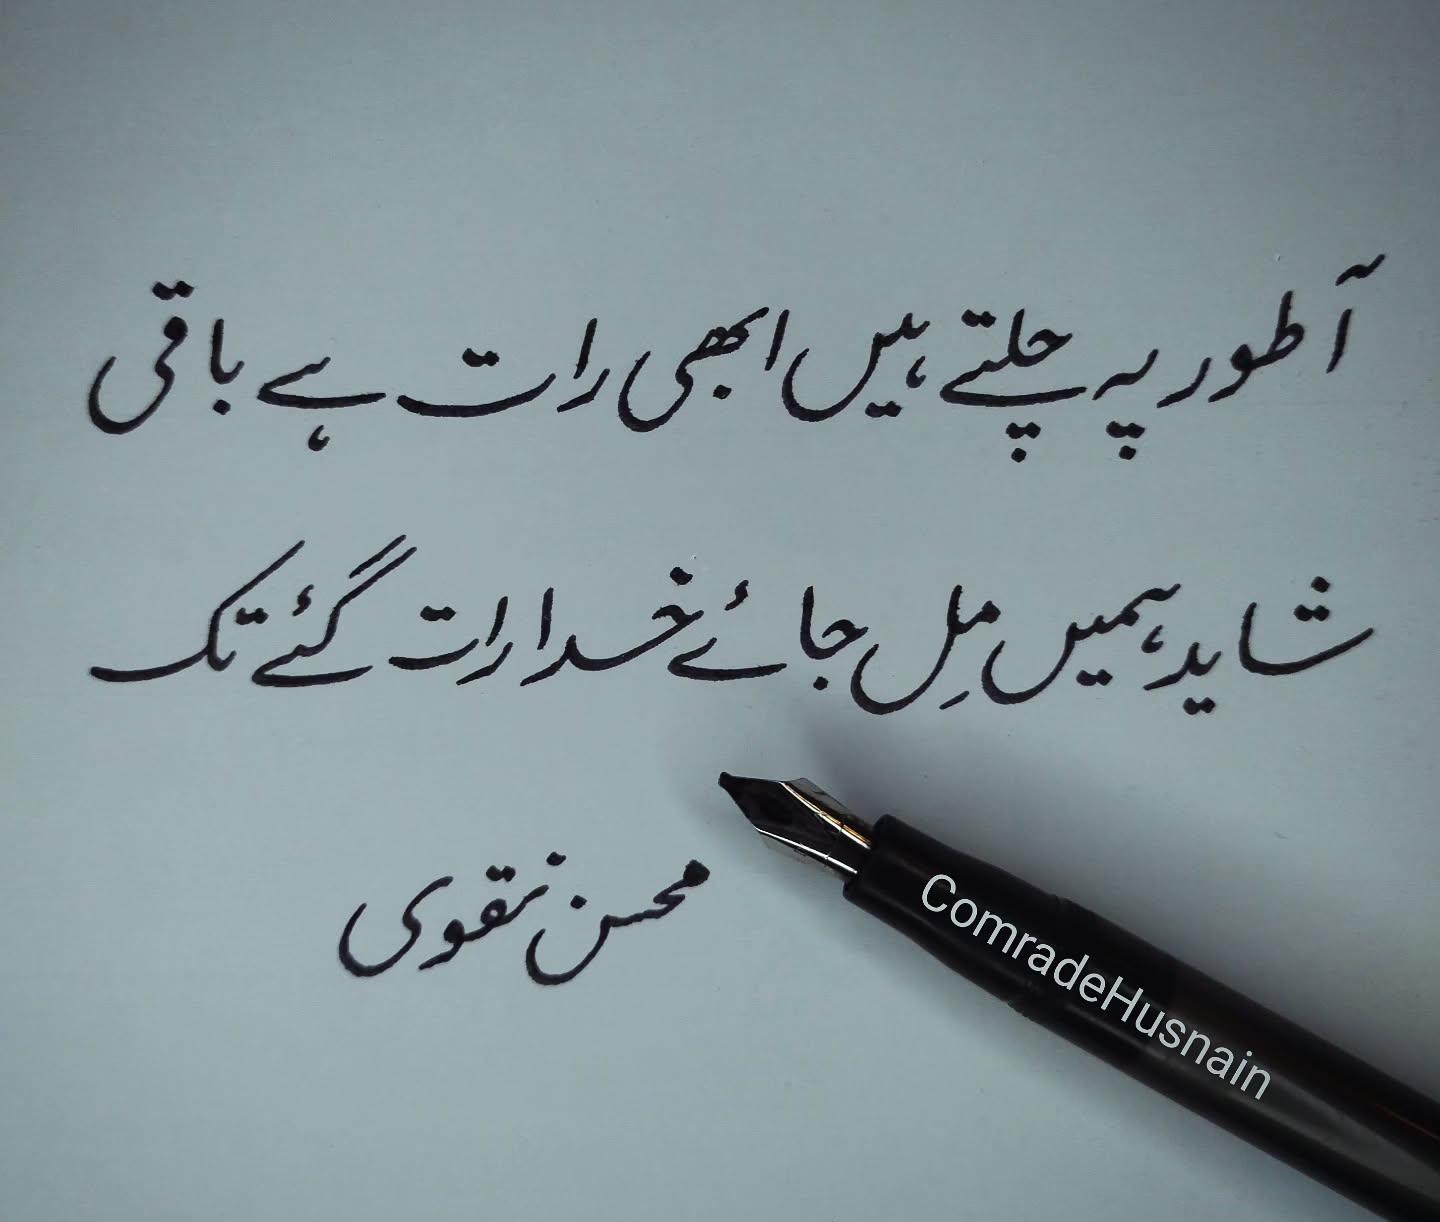 آ طور پہ چلتے ہیں ابھی رات ہے باقی
شاید ہمیں مِل جائے خدا رات گئے تک
محسن نقوی
ComradeHusnain